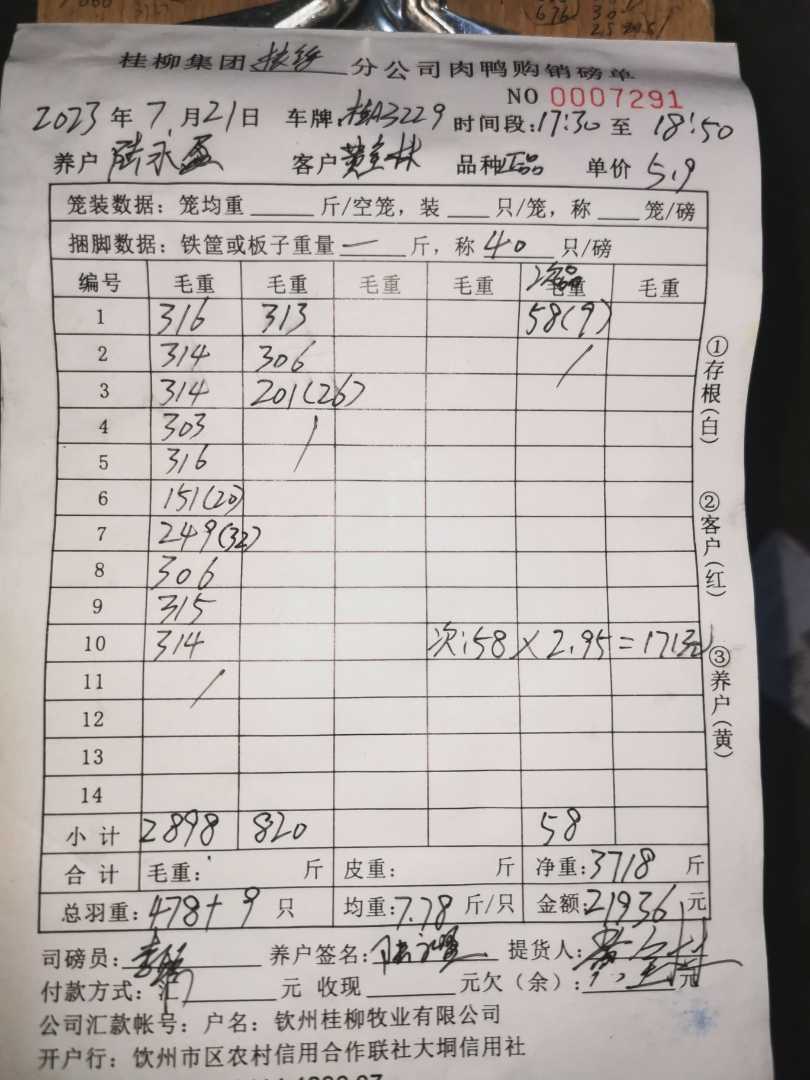 桂柳集团扶绥分公司肉鸭购销磅单
NO 0007291
2023年7月21日 车牌:桂A3229 时间段:17:30至18:50
养户 陆永盈 客户 黄金林 品种 正品 单价 5.9
笼装数据:笼均重____斤/空笼,装____只/笼,称____笼/磅
捆脚数据:铁筐或板子重量一斤,称40只/磅
编号 毛重 毛重 毛重 毛重 次品毛重 毛重
1 316 313 58(9)
2 314 306 /
3 314 201(26)
4 303 /
5 316
6 151(20)
7 249(32)
8 306
9 315
10 314 次:58×2.95=171元
11 /
12
13
14
小计 2898 820 58
合计 毛重: 斤 皮重: 斤 净重:3718 斤
总羽重:478+9 只 均重:7.78 斤/只 金额:21936 元
①存根(白)
②客户(红)
③养户(黄)
司磅员: 养户签名:陆永盈 提货人:黄金林
付款方式:汇____元 收现____元欠(余):____元
公司汇款帐号:户名:钦州桂柳牧业有限公司
开户行:钦州市区农村信用合作联社大垌信用社